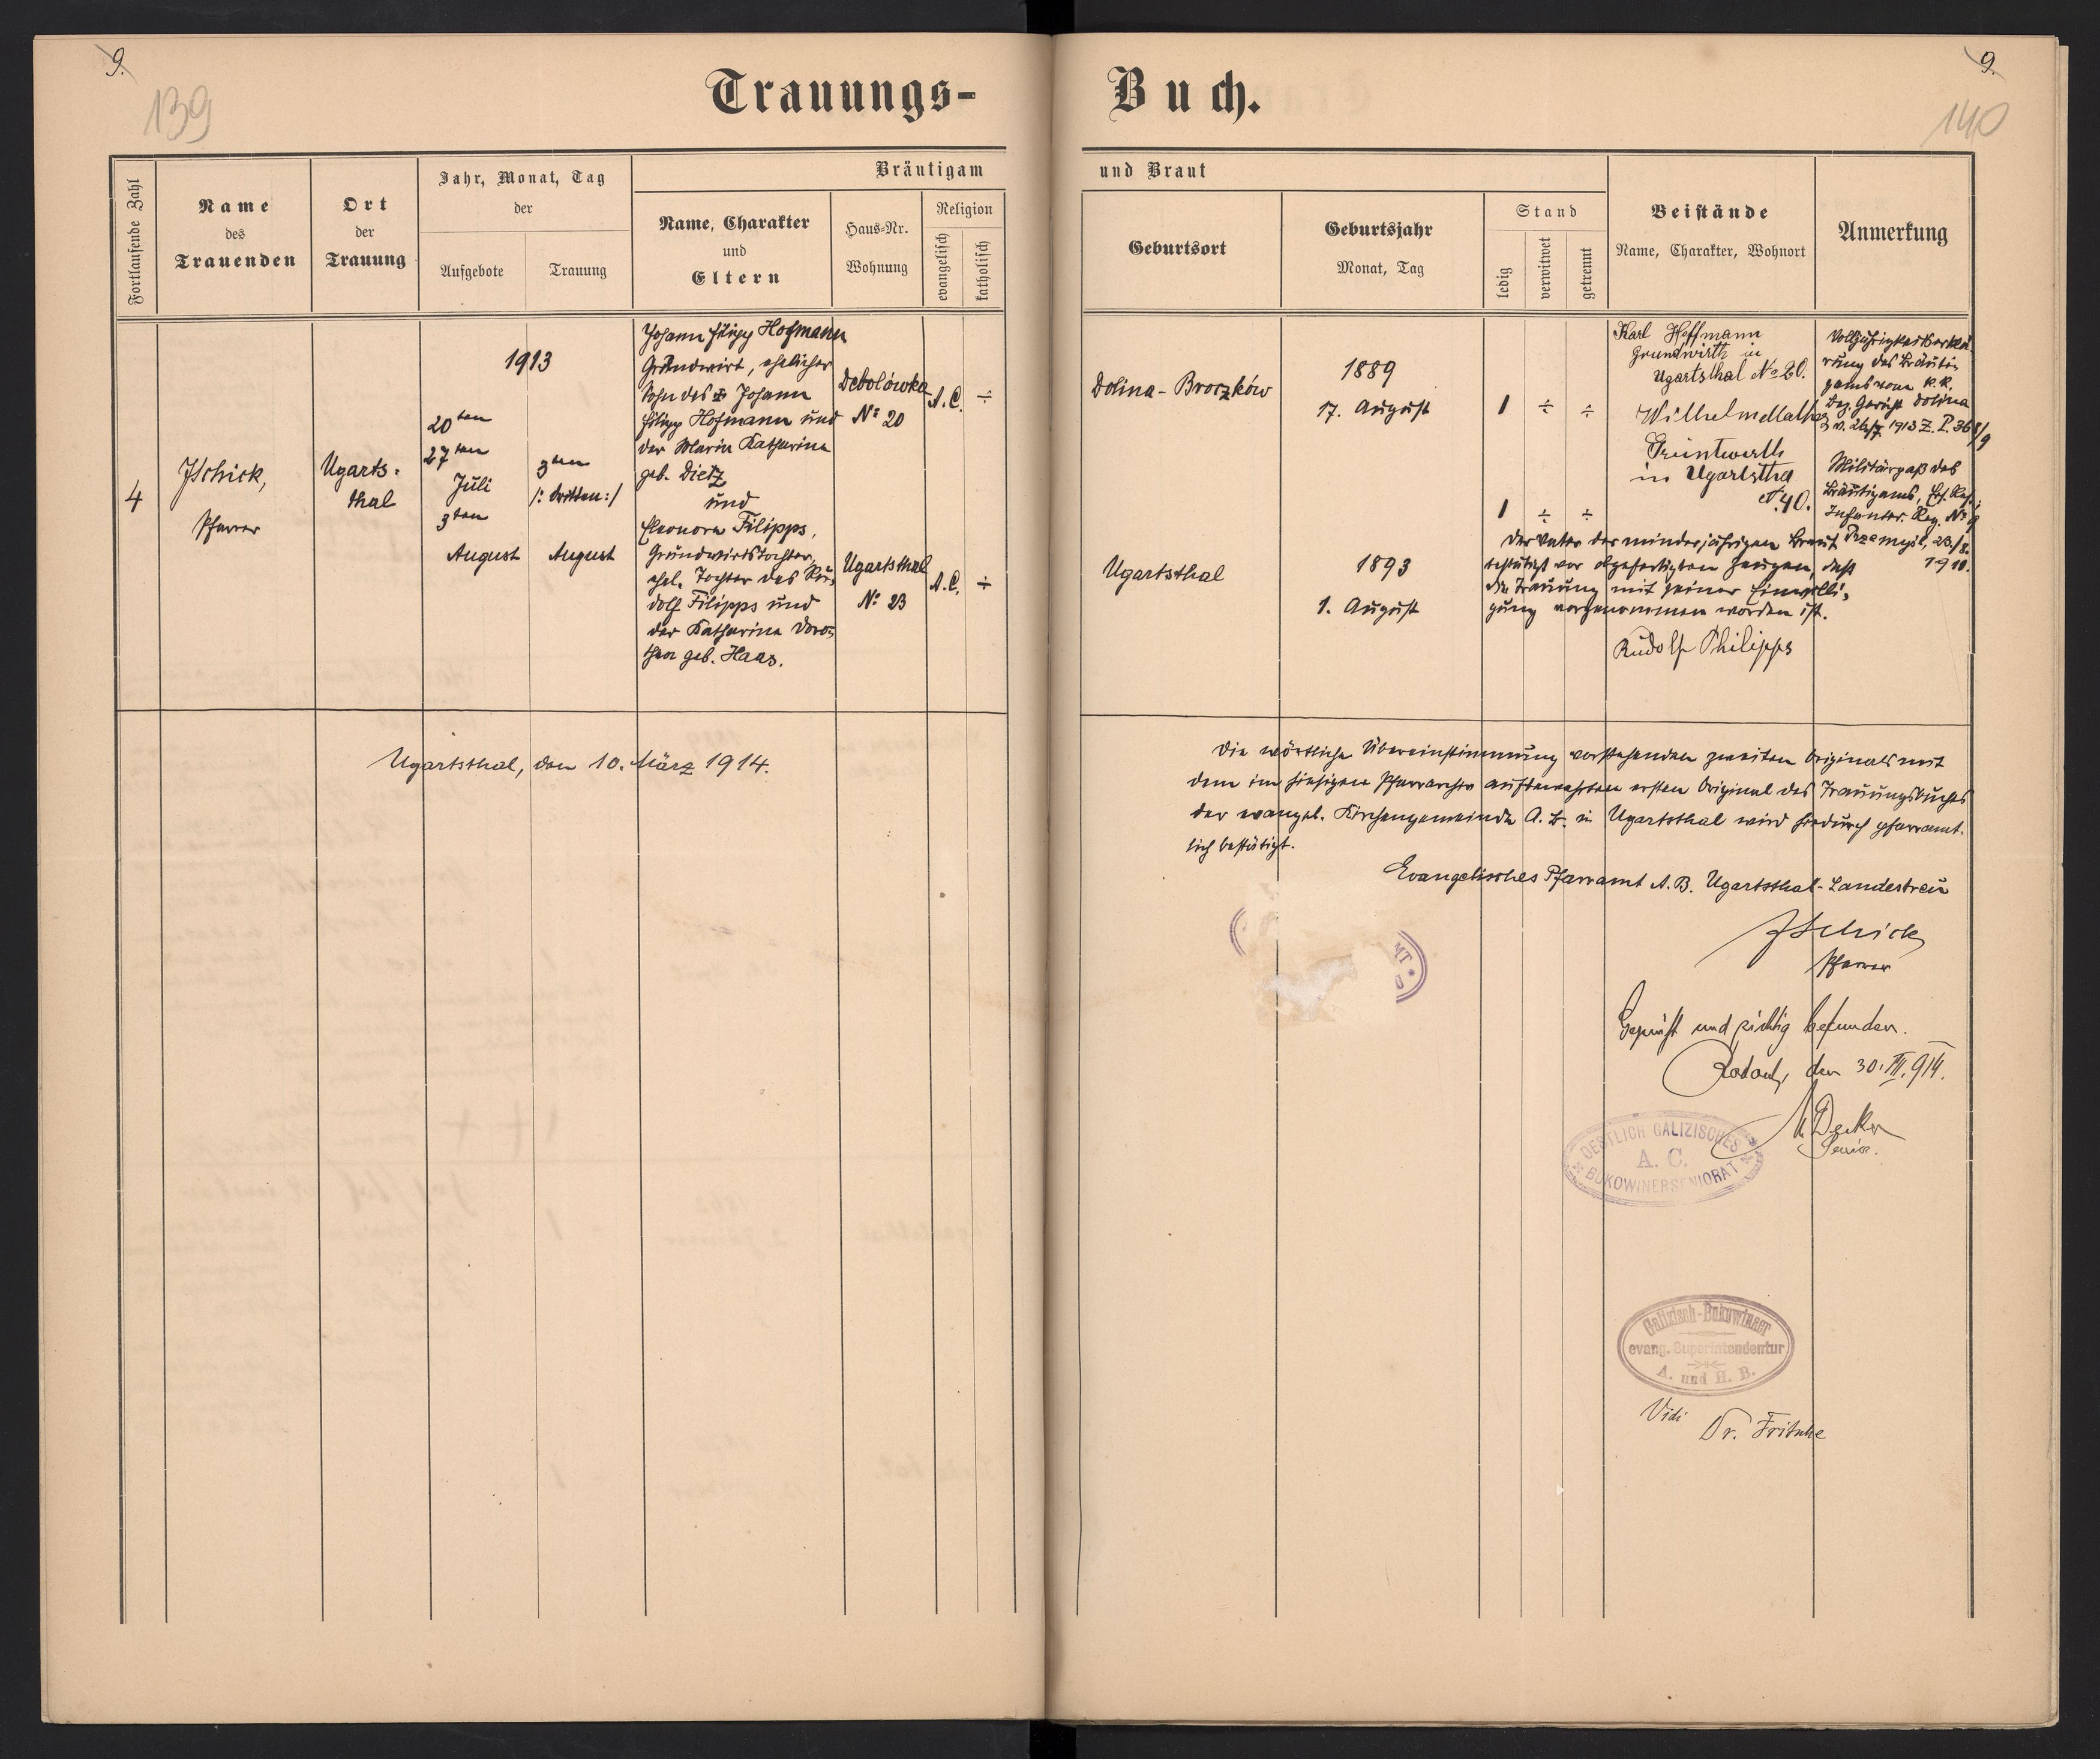 9.
139
Trauungs-
Fortlaufende Zahl
Name
des
Trauenden
Ort
der
Trauung
Jahr, Monat, Tag
der
Aufgebote
Trauung
Bräutigam
Name, Charakter
und
Eltern
Haus-Nr.
Wohnung
Religion
evangelisch
katholisch
4
JSchick,
Pfarrer
Ugarts-
thal
1913
20ten
27ten
Juli
3ten
August
3ten
/: dritten :/
August
Johann Filipp Hofmann
Grundwirt, ehelicher
Sohn des Johann
Filipp Hofmann und
der Maria Katharina
geb. Dietz
und
Eleonora Filipps,
Grundwirtstochter,
ehel. Tochter des Ru-
dolf Filipps und
der Katharina Doro-
thea geb. Haas.
Debolówka
No 20
Ugartsthal
No 23
A. C.
÷
A. C.
÷
Ugartsthal, den 10. März 1914.
9.
140
Buch.
und Braut
Geburtsort
Geburtsjahr
Monat, Tag
Stand
ledig
verwitwet
getrennt
Beistände
Name, Charakter, Wohnort
Anmerkung
Dolina-Broczków
1889
17. August
1 ÷ ÷
Karl Hoffmann
Grundwirth in
Ugartsthal No 20.
Grüntwirth
in Ugartstha
N. 40.
Volljährigkeitserklä-
rung des Bräuti-
gams vom k.k.
Bez. Gericht Dolina
Militärpaß des
Bräutigams,
Infanter. Reg. No 9
Przemysl,
1910.
1 ÷ ÷
Ugartsthal
1893
1. August
Der Vater der minderjährigen Braut
bestätigt vor abgefertigten Zeugen, daß
die Trauung mit seiner Einwilli-
gung vorgenommen worden ist.
Rudolf Philipps
Die wörtliche Übereinstimmung vorstehenden zweiten Originals mit
dem im hiesigen Pfarrarchiv aufbewahrten ersten Original des Trauungsbuches
der evangel. Kirchengemeinde A. B. in Ugartsthal wird hiedurch pfarramt-
lich bestätigt.
Evangelisches Pfarramt A. B. Ugartsthal-Landestreu
JSchick
Pfarrer
Geprüft und richtig befunden.
den 30. III. 914.
Decker
Senior.
OESTLICH GALIZISCHES
A. C.
BUKOWINER SENIORAT
Galizisch-Bukowiner
evang. Superintendentur
A. und H. B.
Vidi
Dr. Fritsche